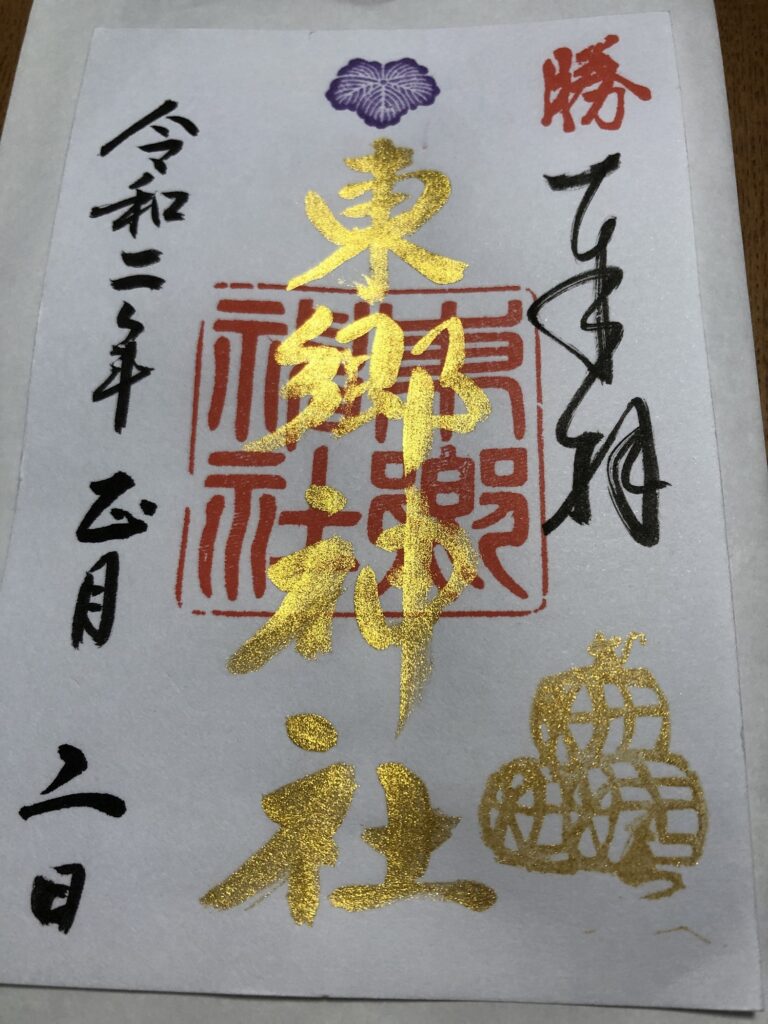 勝
奉拝
東郷神社
東郷
神社
令和二年 正月 日